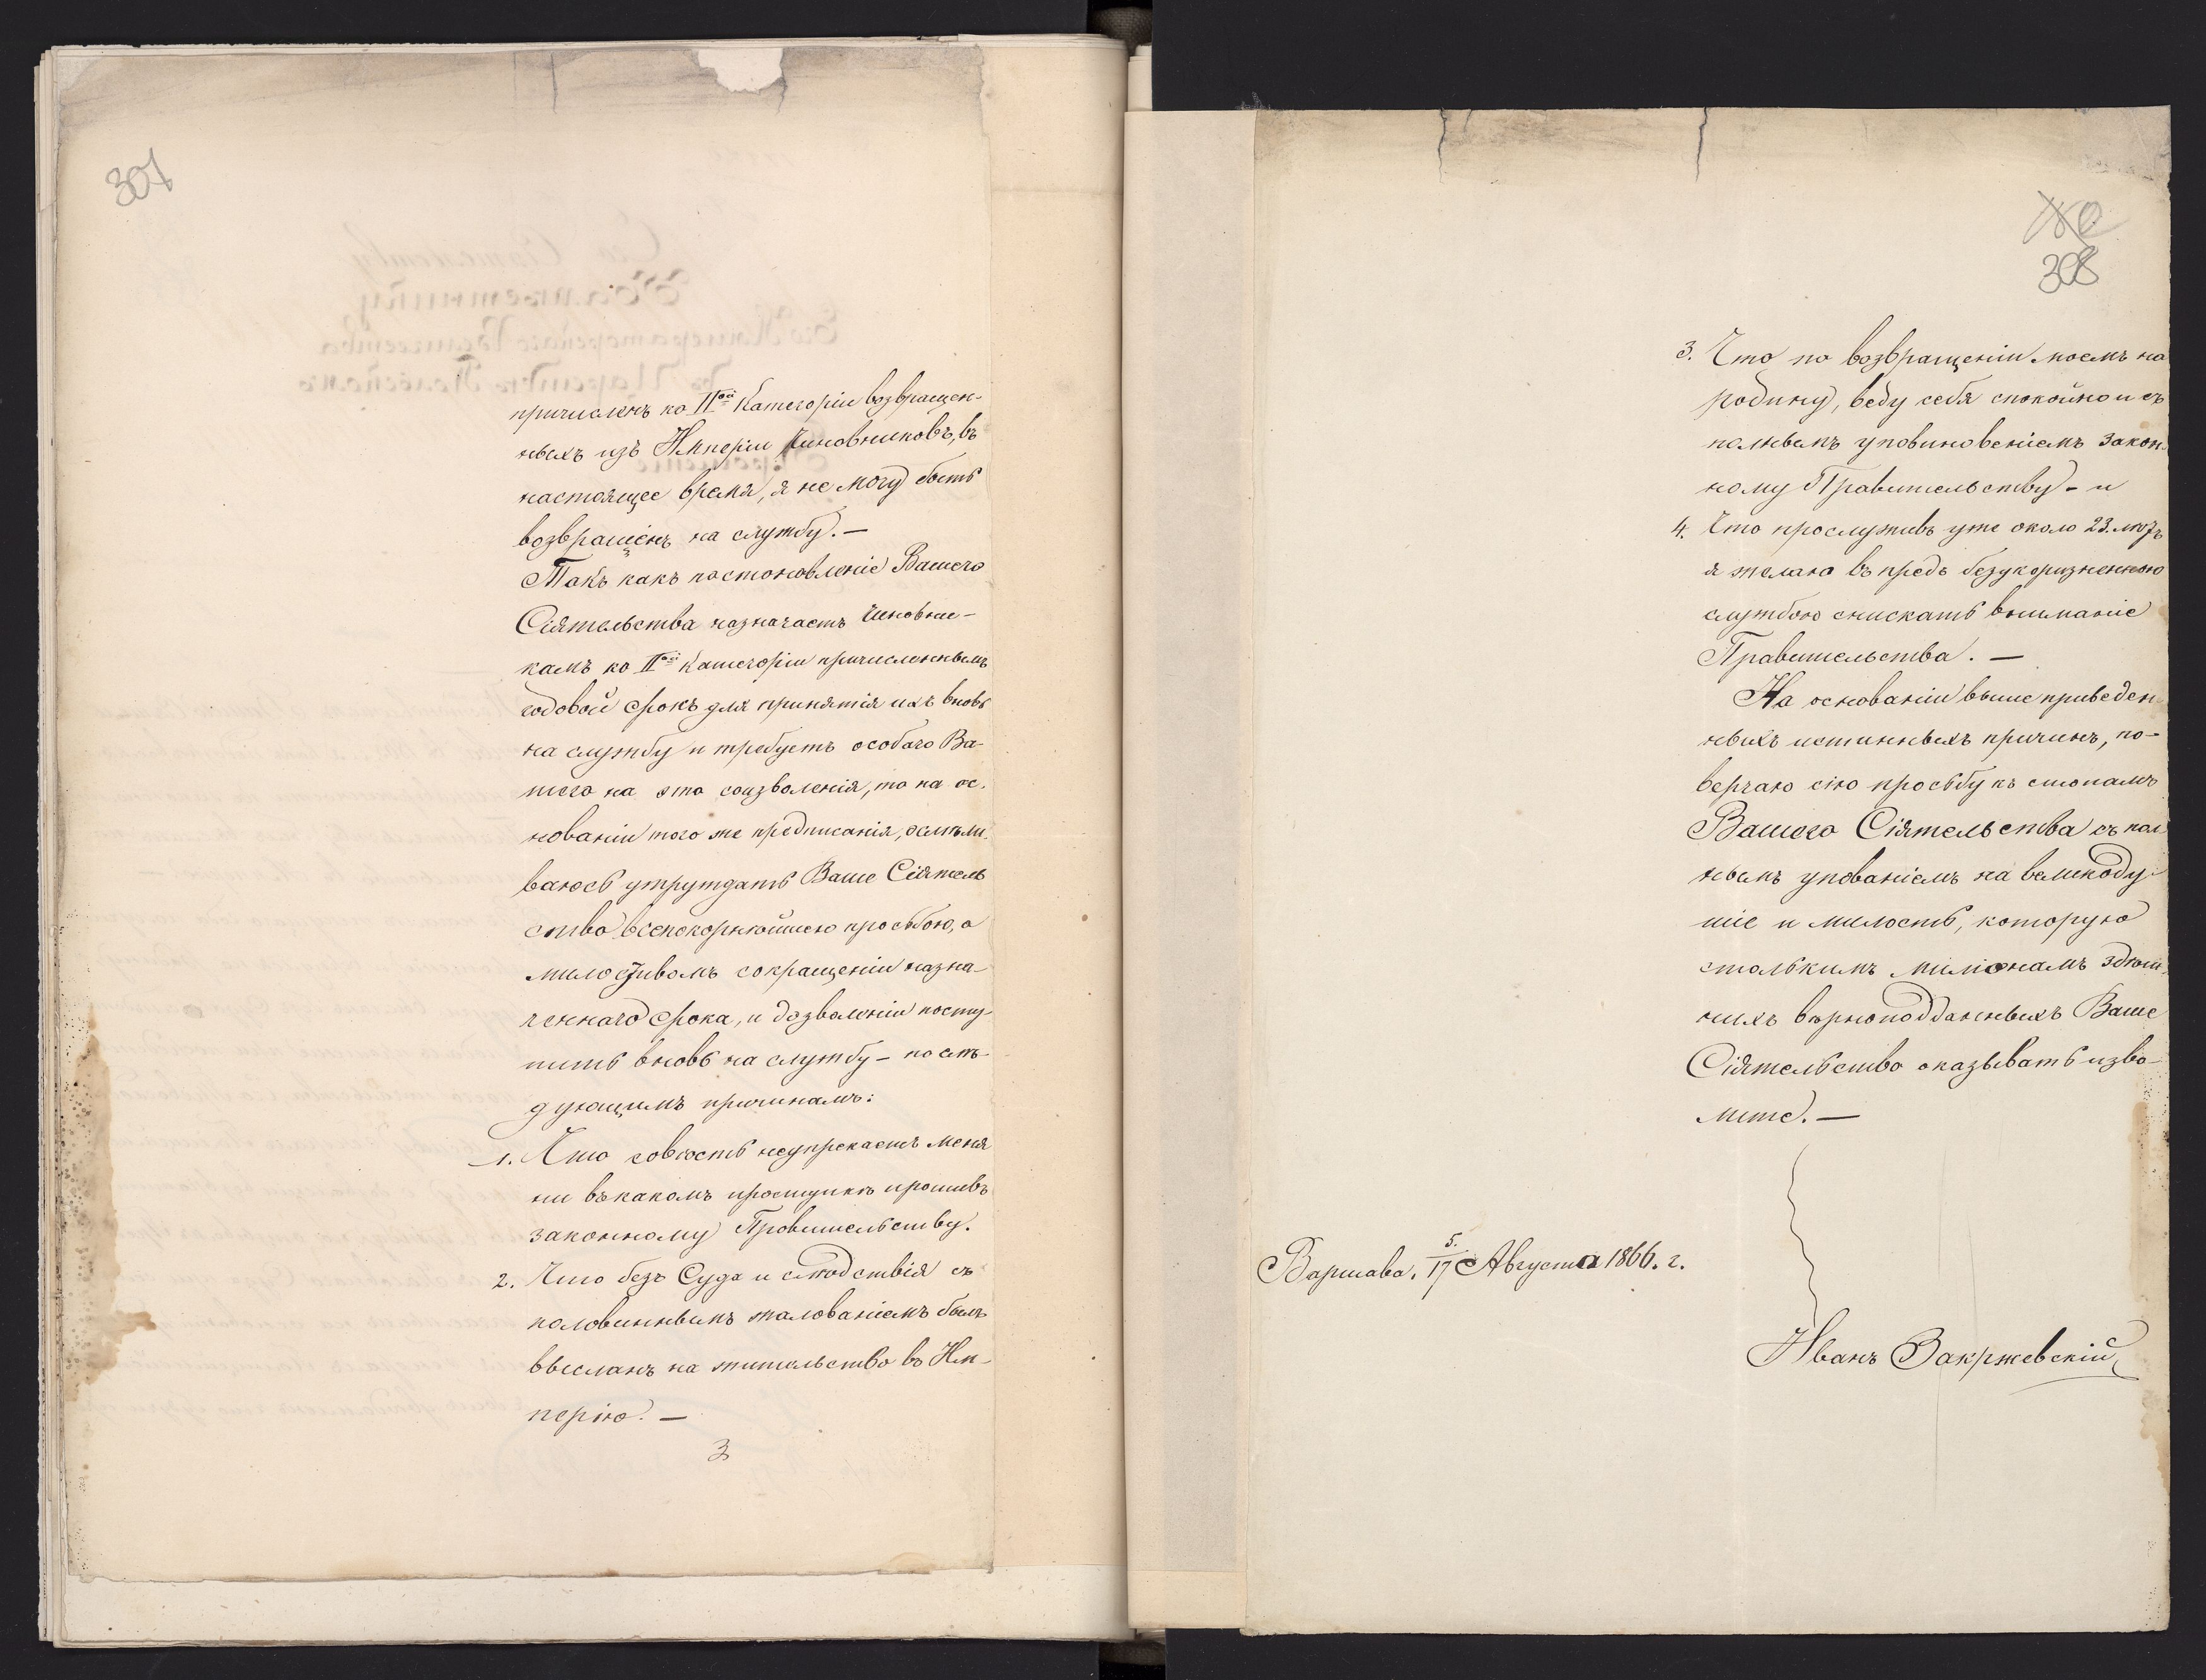 307
причисленъ ко IIой Категоріи возвращен-
ныхъ изъ Имперіи Чиновниковъ, въ
настоящее время, я не могу быть
возвращенъ на службу. —
Такъ какъ постоновленіе Вашего
Сіятельства назначаетъ Чиновни-
камъ ко IIой Категоріи причисленнымъ
годовой срокъ для принятія ихъ вновь
на службу и требуетъ особаго Ва-
шего на это соизволенія, то на ос.
нованіи того же предписанія, осмѣли.
ваюсь утруждать Ваше Сіятель
ство всепокорнѣйшею просьбою, о
милостивомъ сокращеніи назна-
ченнаго срока, и дозволеніи посту-
пить вновь на службу — по слѣ-
дующимъ причинамъ:
1. Что совѣсть неупрекаетъ меня
ни въ какомъ проступкѣ противъ
законному Провительству.
2. Что безъ Суда и слѣдствія съ
половиннымъ жалованіемъ былъ
высланъ на жительство въ Им-
перію. —
3
308
3. Что по возвращеніи моемъ на
родину, веду себя спокойно и съ
полнымъ уповиновеніемъ закон-
ному Правительству — и
4. Что прослуживъ уже около 23. лѣтъ
я желаю въ предъ безукоризненною
службою снискать вниманіе
Правительства. —
На основаніи выше приведен-
ныхъ истинныхъ причинъ, по-
вергаю сію просьбу къ стопамъ
Вашего Сіятельства съ пол-
нымъ упованіемъ на великоду-
шіе и милость, которую
столькимъ миліонамъ здѣш-
нихъ вѣрноподданныхъ Ваше
Сіятельство оказывать изво-
лите. —
Варшава, 5./17 Августа 1866. г.
Иванъ Закржевскій